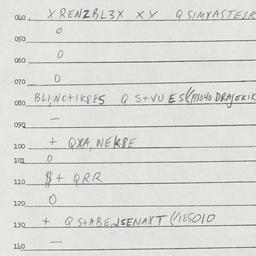 040. XRENZBL3X XY QSIMYASTEJR
050. O
060. O
070. O
080. BLINCTIK8ES Q S+VU ES
090. —
100. + QXA, NEK8E
10 O
110. $+ QRR
120. O
130. + QS+ABE, JSENAXT (/185010
140. —